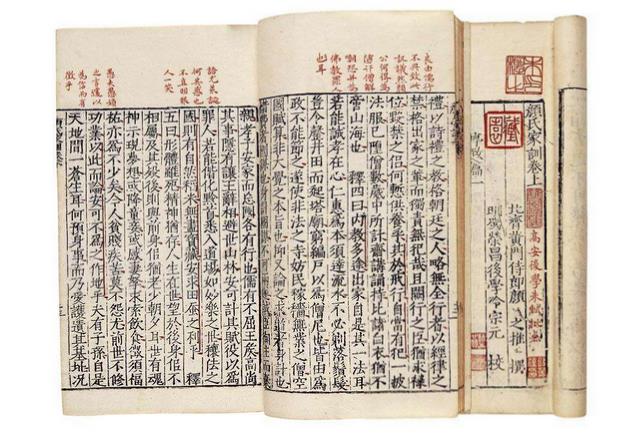 顏氏家訓卷上
北齊黃門侍郎顏之推 撰
明蜀榮昌後學冷宗元 校
高安後學朱軾評點
序致篇一
禮以詩禮之教格朝廷之人略無全行者以經律之
禁格出家之輩而獨責無犯哉且闕行之臣猶求祿
位毀禁之侶何慙供養乎其於戒行自當有犯一披
法服已墮僧數歲中所計齋講誦持比諸白衣猶不
啻山海也 釋四曰內教多途出家自是其一法耳
若能誠孝在心仁惠為本須達流水不必剃落鬚髮
豈令罄井田而起塔廟窮編戶以為僧尼也皆由為
政不能節之遂使非法之寺妨民稼穡無業之僧空
國賦算非大覺之本旨也抑又論之求道者身計也
親孝子安家而忘國各有行也儒有不屈王侯高尚
其事隱有讓王辭相避世山林安可計其賦役以為
罪人若能偕化黔首悉入道場如妙樂之世穰佉之
國則有自然稻米無盡寶藏安求田蠶之利乎 釋
五曰形體雖死精神猶存人生在世望於後身似不
相屬及其歿後則與前身似猶老少朝夕耳世有魂
神示現夢想或降童妾或感妻孥求索飲食徵須福
祐亦為不少矣今人貧賤疾苦莫不怨尤前世不修
功業以此而論安可不為之作地乎夫有子孫自是
天地間一蒼生耳何預身事而乃愛護遺其基址況
愚夫愚婦
之言遽以
為信而有
徵乎